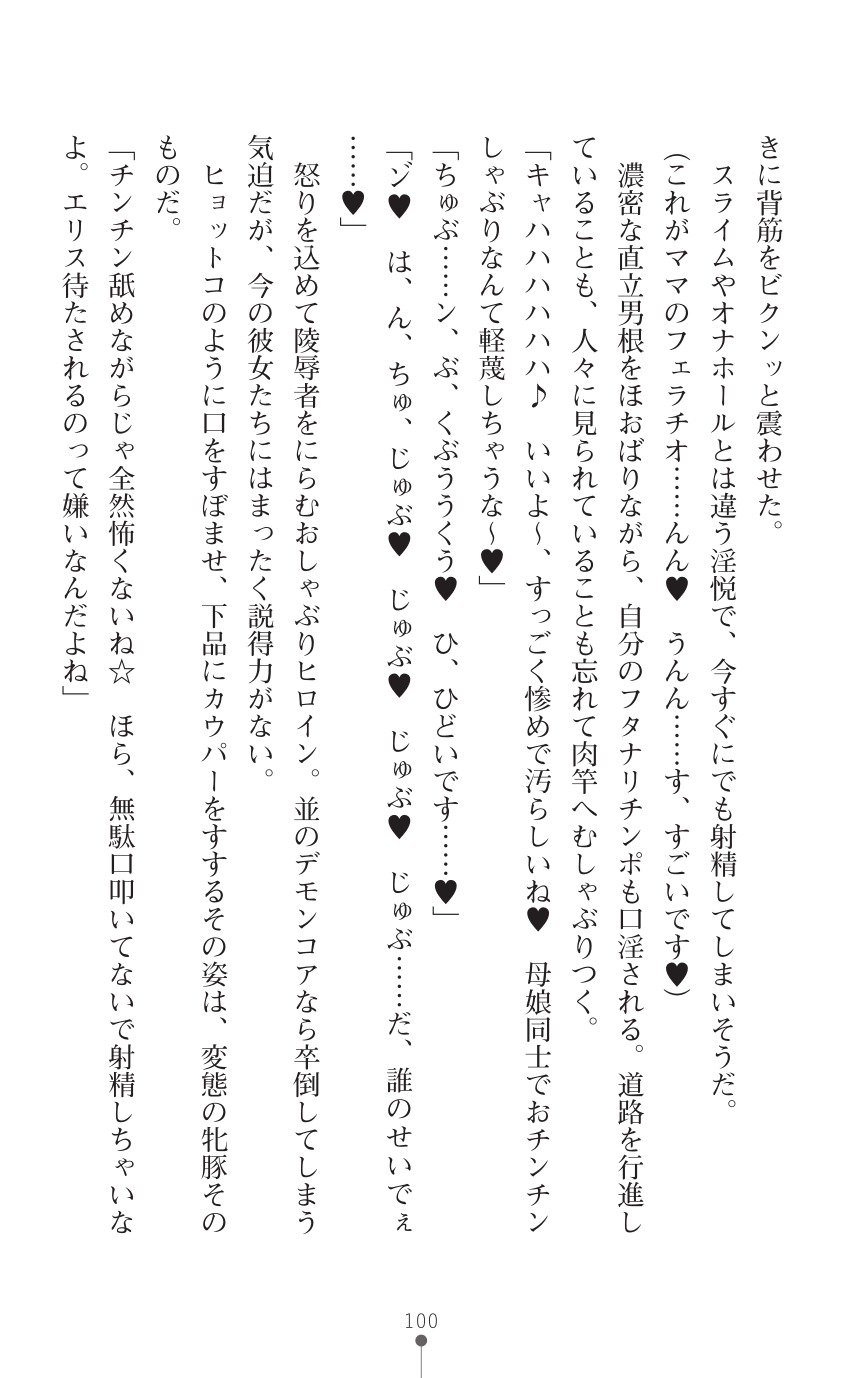 きに背筋をビクンッと震わせた。
スライムやオナホールとは違う淫悦で、今すぐにでも射精してしまいそうだ。
(これがママのフェラチオ……んん♥　うんん……す、すごいです♥)
濃密な直立男根をほおばりながら、自分のフタナリチンポも口淫される。道路を行進し
ていることも、人々に見られていることも忘れて肉竿へむしゃぶりつく。
「キャハハハハハハ♪　いいよ～、すっごく惨めで汚らしいね♥　母娘同士でおチンチン
しゃぶりなんて軽蔑しちゃうな～♥」
「ちゅぶ……ン、ぶ、くぶううくう♥　ひ、ひどいです……♥」
「ゾ♥　は、ん、ちゅ、じゅぶ♥　じゅぶ♥　じゅぶ♥　じゅぶ……だ、誰のせいでぇ
……♥」
怒りを込めて陵辱者をにらむおしゃぶりヒロイン。並のデモンコアなら卒倒してしまう
気迫だが、今の彼女たちにはまったく説得力がない。
ヒョットコのように口をすぼませ、下品にカウパーをすするその姿は、変態の牝豚その
ものだ。
「チンチン舐めながらじゃ全然怖くないね☆　ほら、無駄口叩いてないで射精しちゃいな
よ。エリス待たされるのって嫌いなんだよね」
100